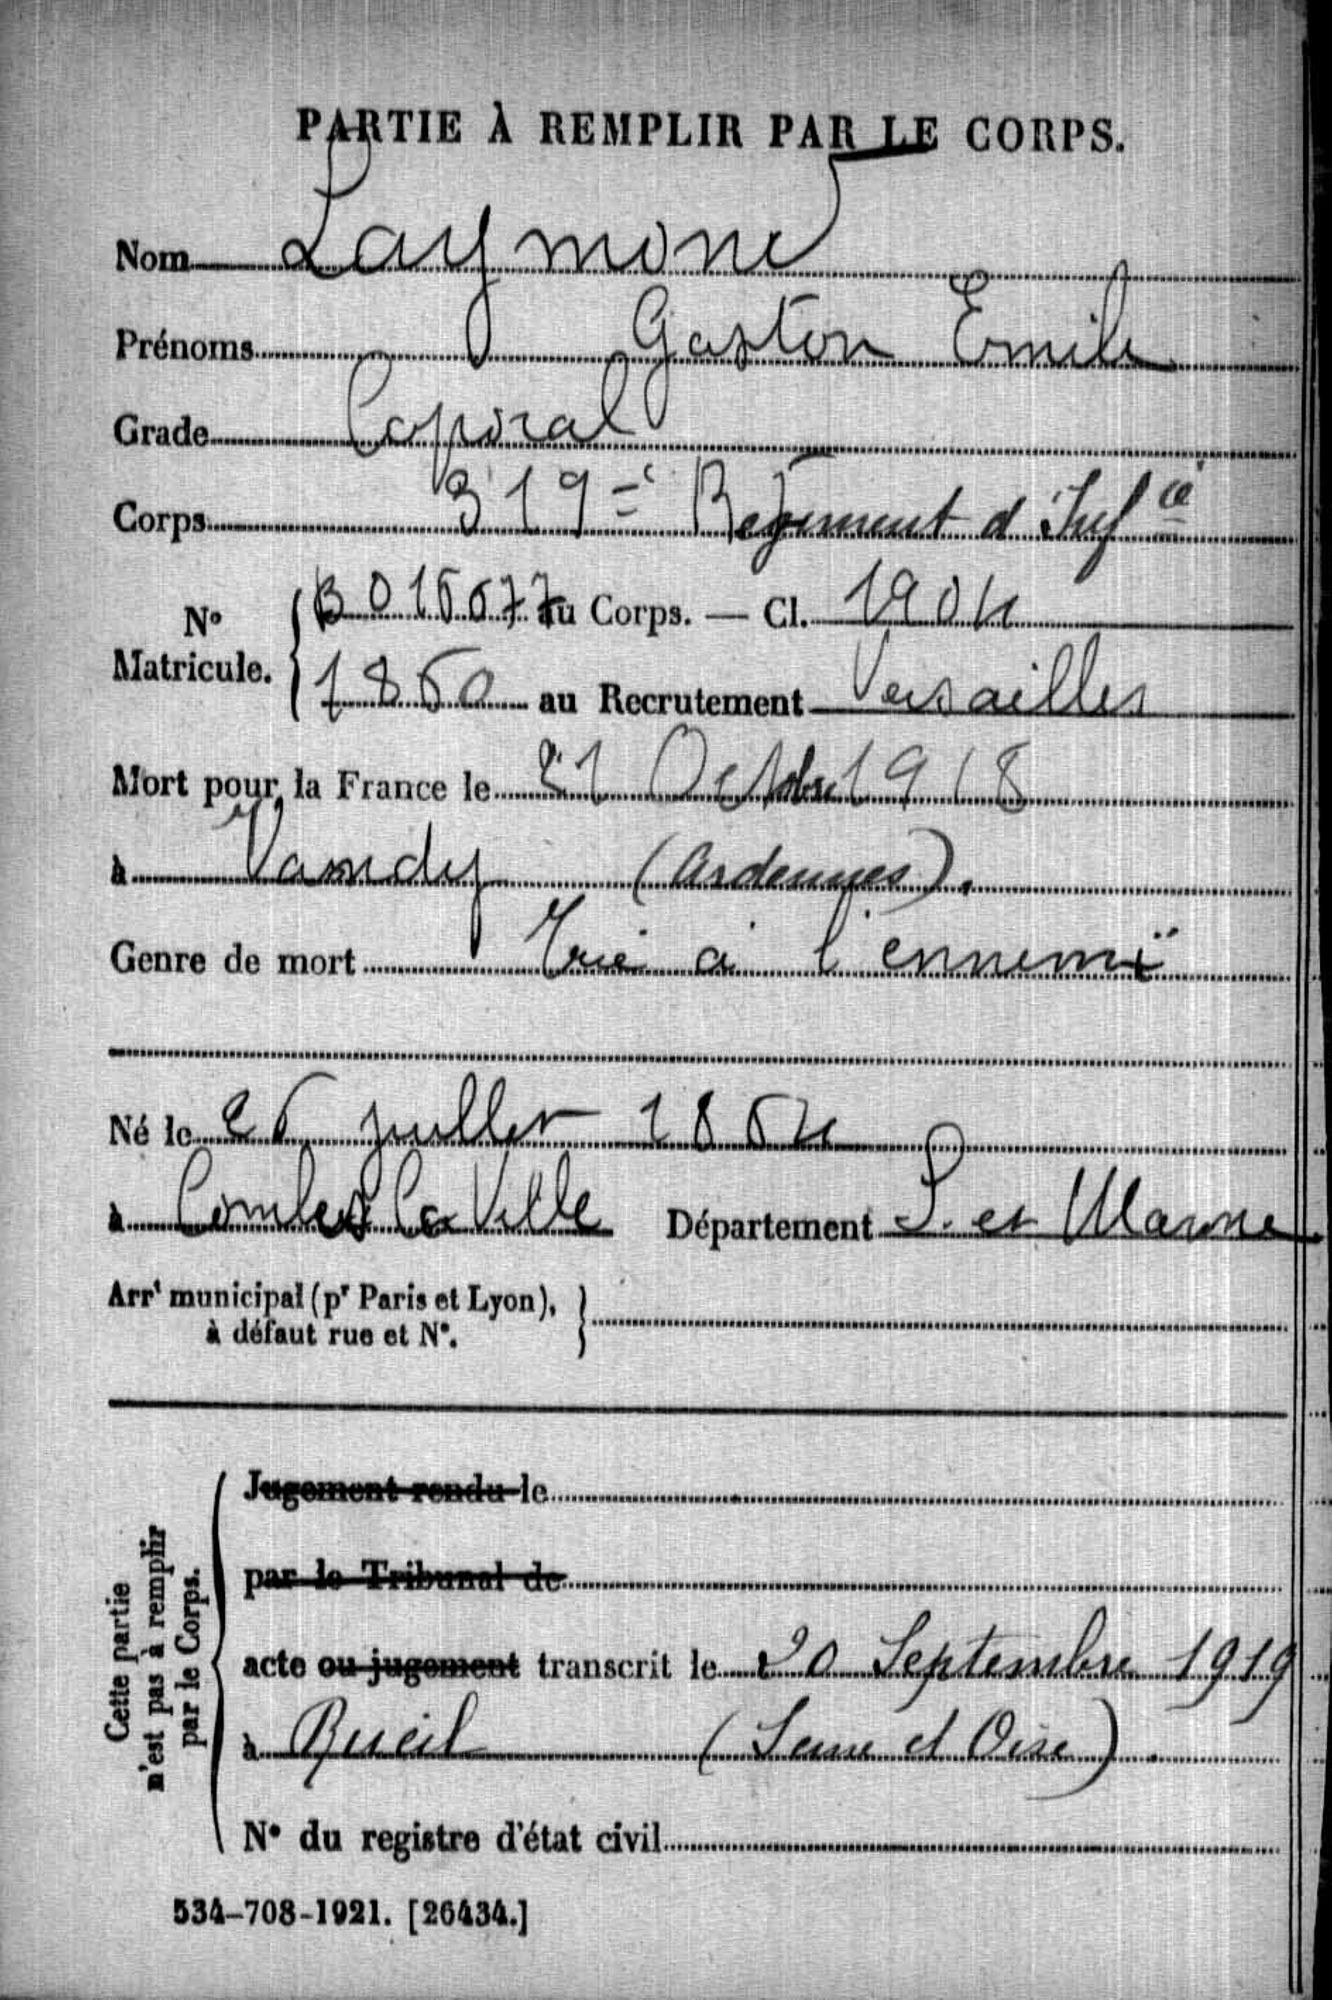 PARTIE À REMPLIR PAR LE CORPS.
Nom Laymond
Prénoms Gaston Emile
Grade Caporal
Corps 319e Régiment d'Infie
N° Matricule. au Corps. — Cl. 1904
1860 au Recrutement Versailles
Mort pour la France le 21 Octobre 1918
à Vandy (Ardennes).
Genre de mort Tué à l'ennemi
Né le 26 juillet 1884
à Combes la Ville Département S. et Marne
Arrt municipal (pr Paris et Lyon),
à défaut rue et N°.
Cette partie
n'est pas à remplir
par le Corps.
Jugement rendu le
par le Tribunal de
acte ou jugement transcrit le 20 Septembre 1919
à Rueil (Seine et Oise)
N° du registre d'état civil
534-708-1921. [26434.]